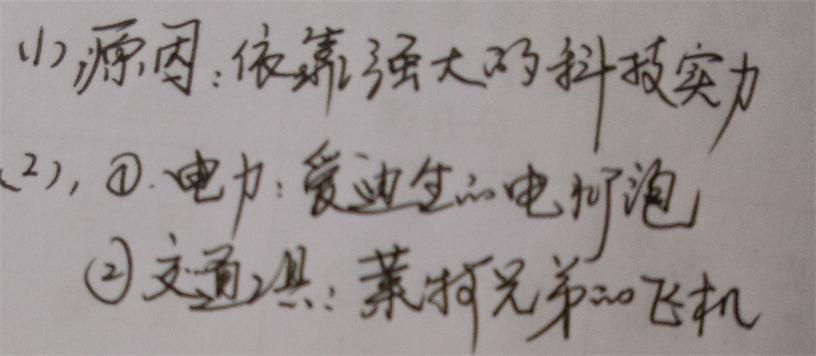 (1)原因:依靠强大的科技实力
(2),①.电力:爱迪生的电灯泡
②交通工具:莱特兄弟的飞机